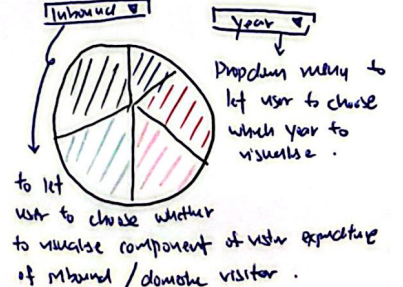 Inbound
year
Dropdown menu to
let user to choose
which year to
visualise .
to let
user to choose whether
to visualise component of visitor expenditure
of inbound / domestic visitor .